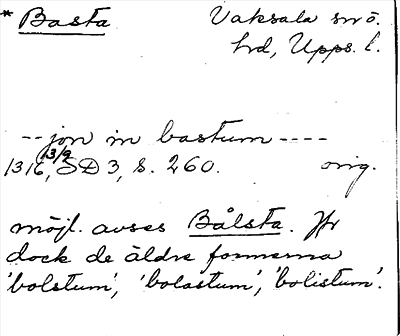 * Basta Vaksala sn ö.
hrd, Upps. l.
-- jon in bastum ----
1316 13/9, SD 3, s. 260. orig.
möjl. avses Bålsta. Jfr
dock de äldre formerna
'bolstum', 'bolastum', 'bolistum'.